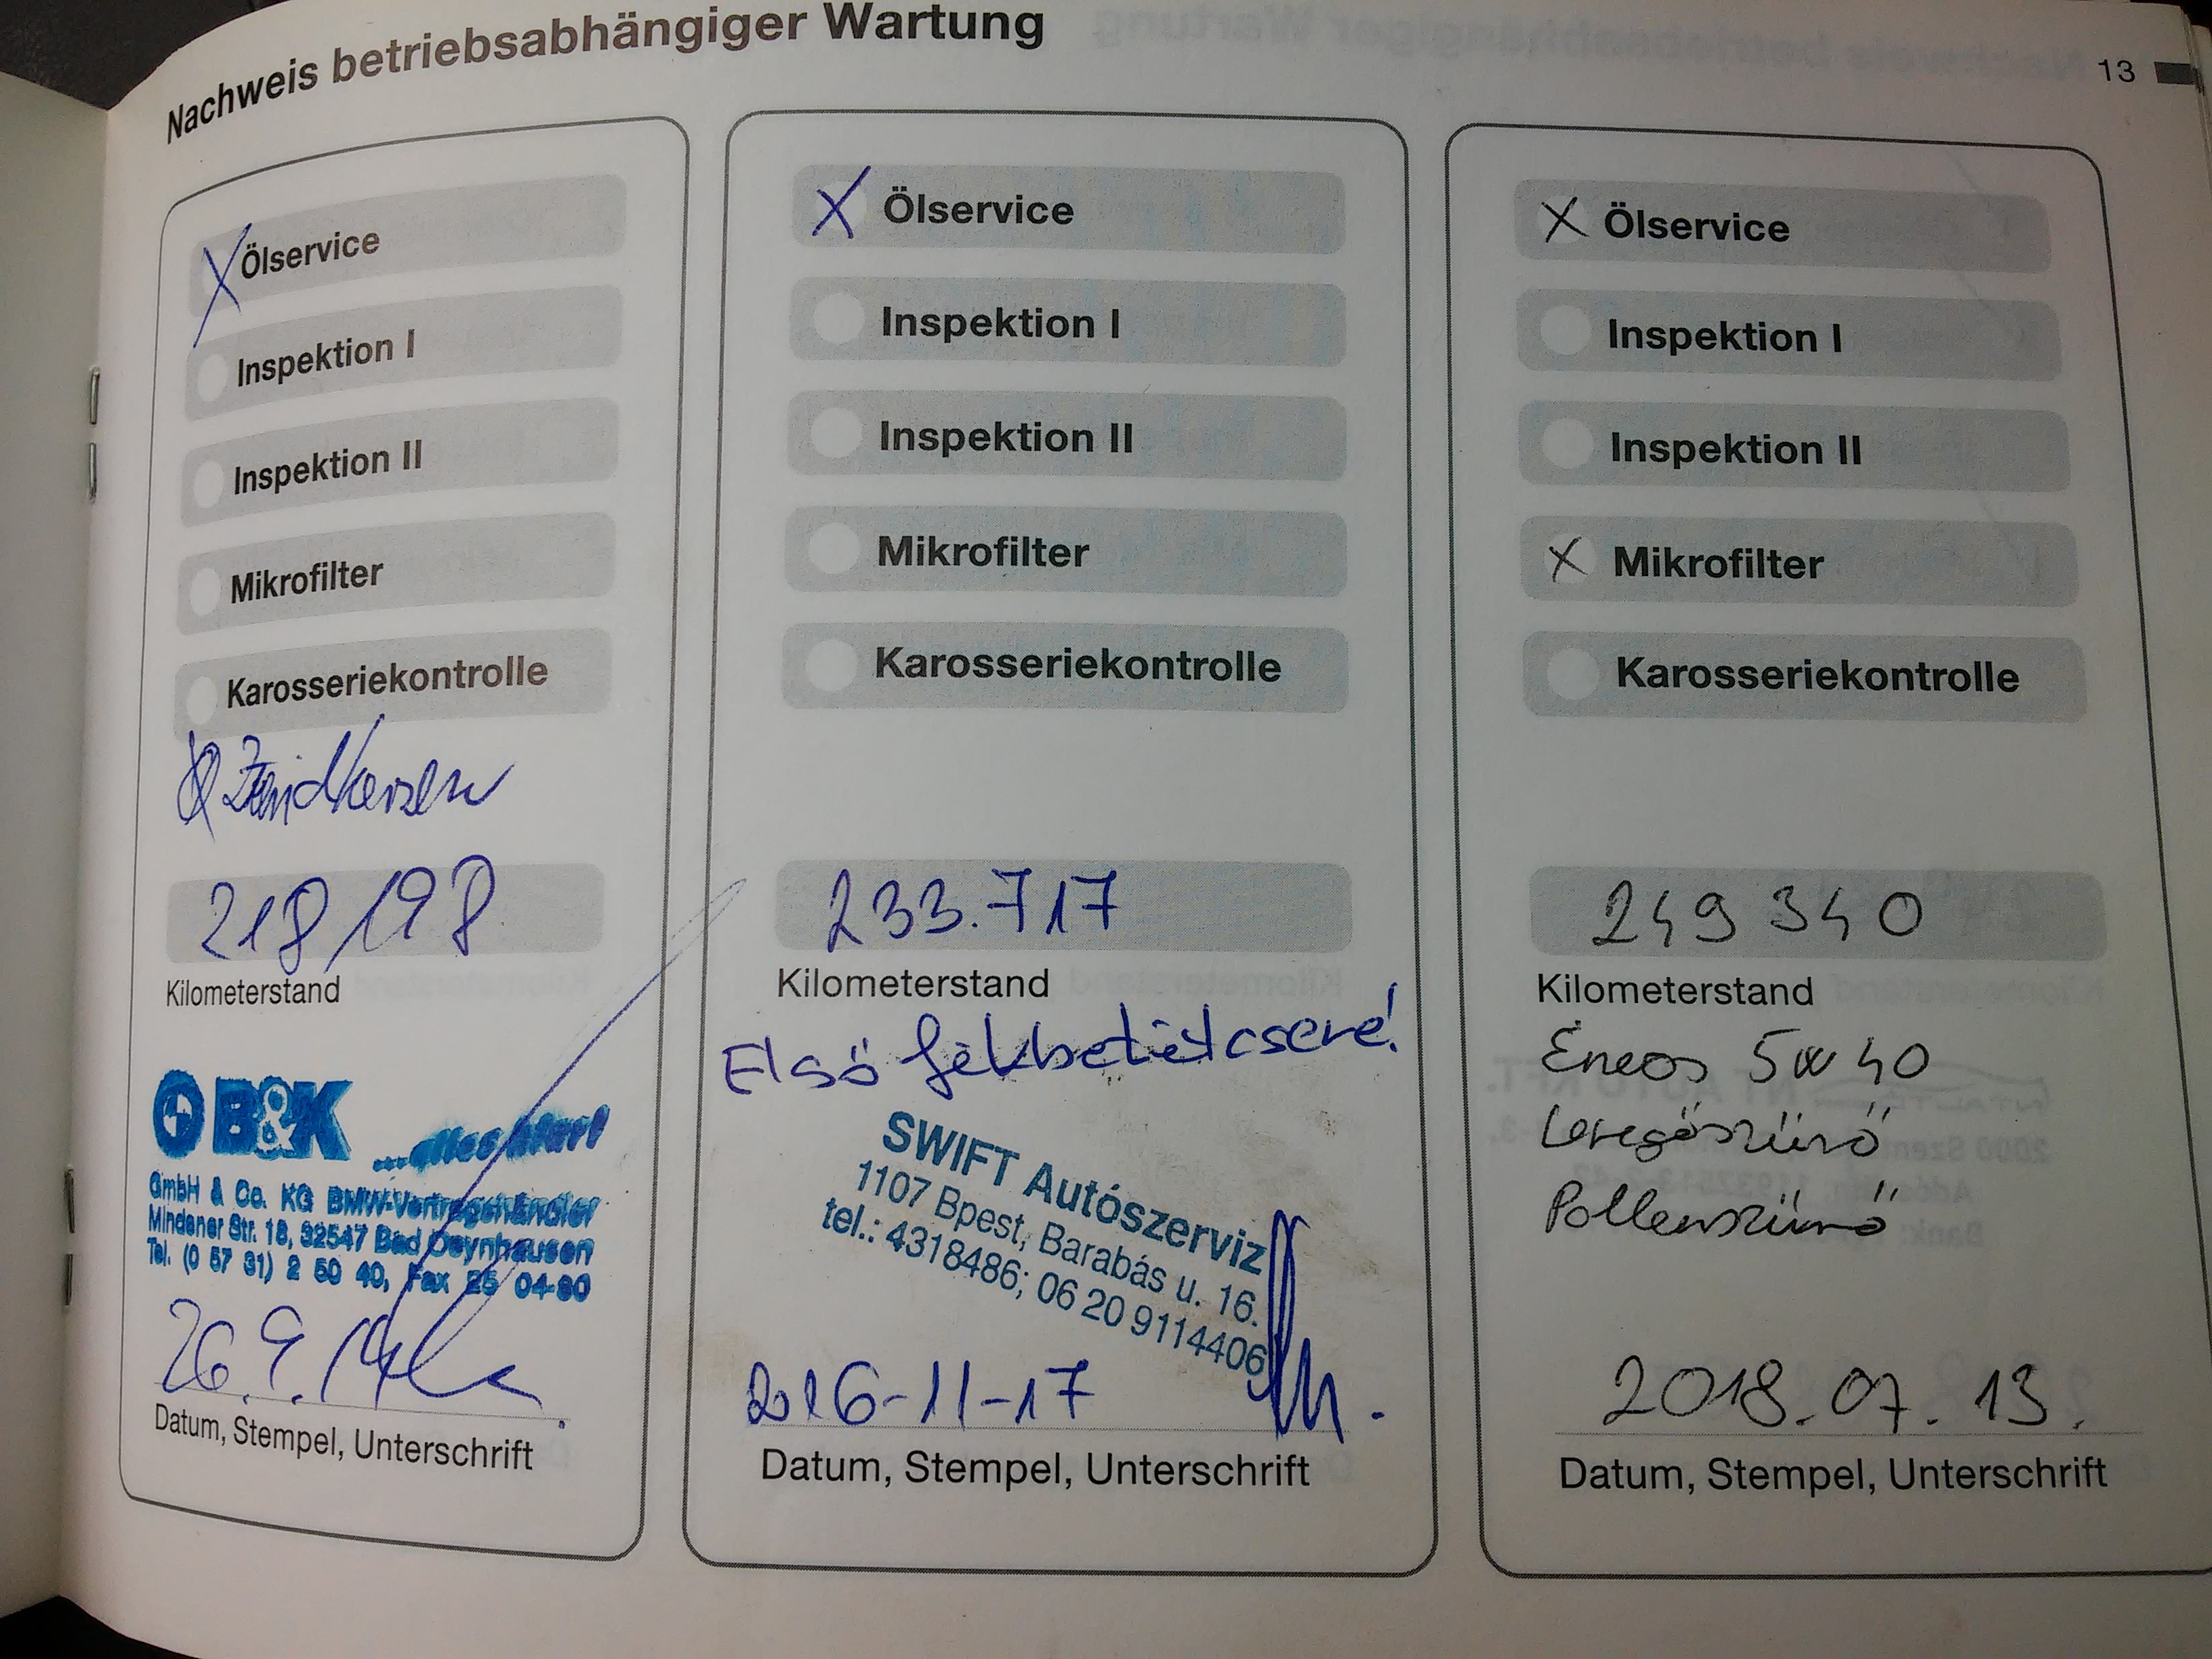 Nachweis betriebsabhängiger Wartung
13
X Ölservice
Inspektion I
Inspektion II
Mikrofilter
Karosseriekontrolle
Zündkerzen
218198
Kilometerstand
B&K
GmbH & Co. KG BMW-Vertragshändler
Mindener Str. 18, 32547 Bad Oeynhausen
Tel. (0 57 31) 2 50 40, Fax 25 04-80
26.9.14
Datum, Stempel, Unterschrift
X Ölservice
Inspektion I
Inspektion II
Mikrofilter
Karosseriekontrolle
233.717
Kilometerstand
Első fékbetétcsere!
SWIFT Autószerviz
1107 Bpest, Barabás u. 16.
tel.: 4318486; 06 20 9114406
2016-11-17
Datum, Stempel, Unterschrift
X Ölservice
Inspektion I
Inspektion II
X Mikrofilter
Karosseriekontrolle
249 340
Kilometerstand
Eneos 5w40
Levegőszűrő
Pollenszűrő
2018.07.13.
Datum, Stempel, Unterschrift